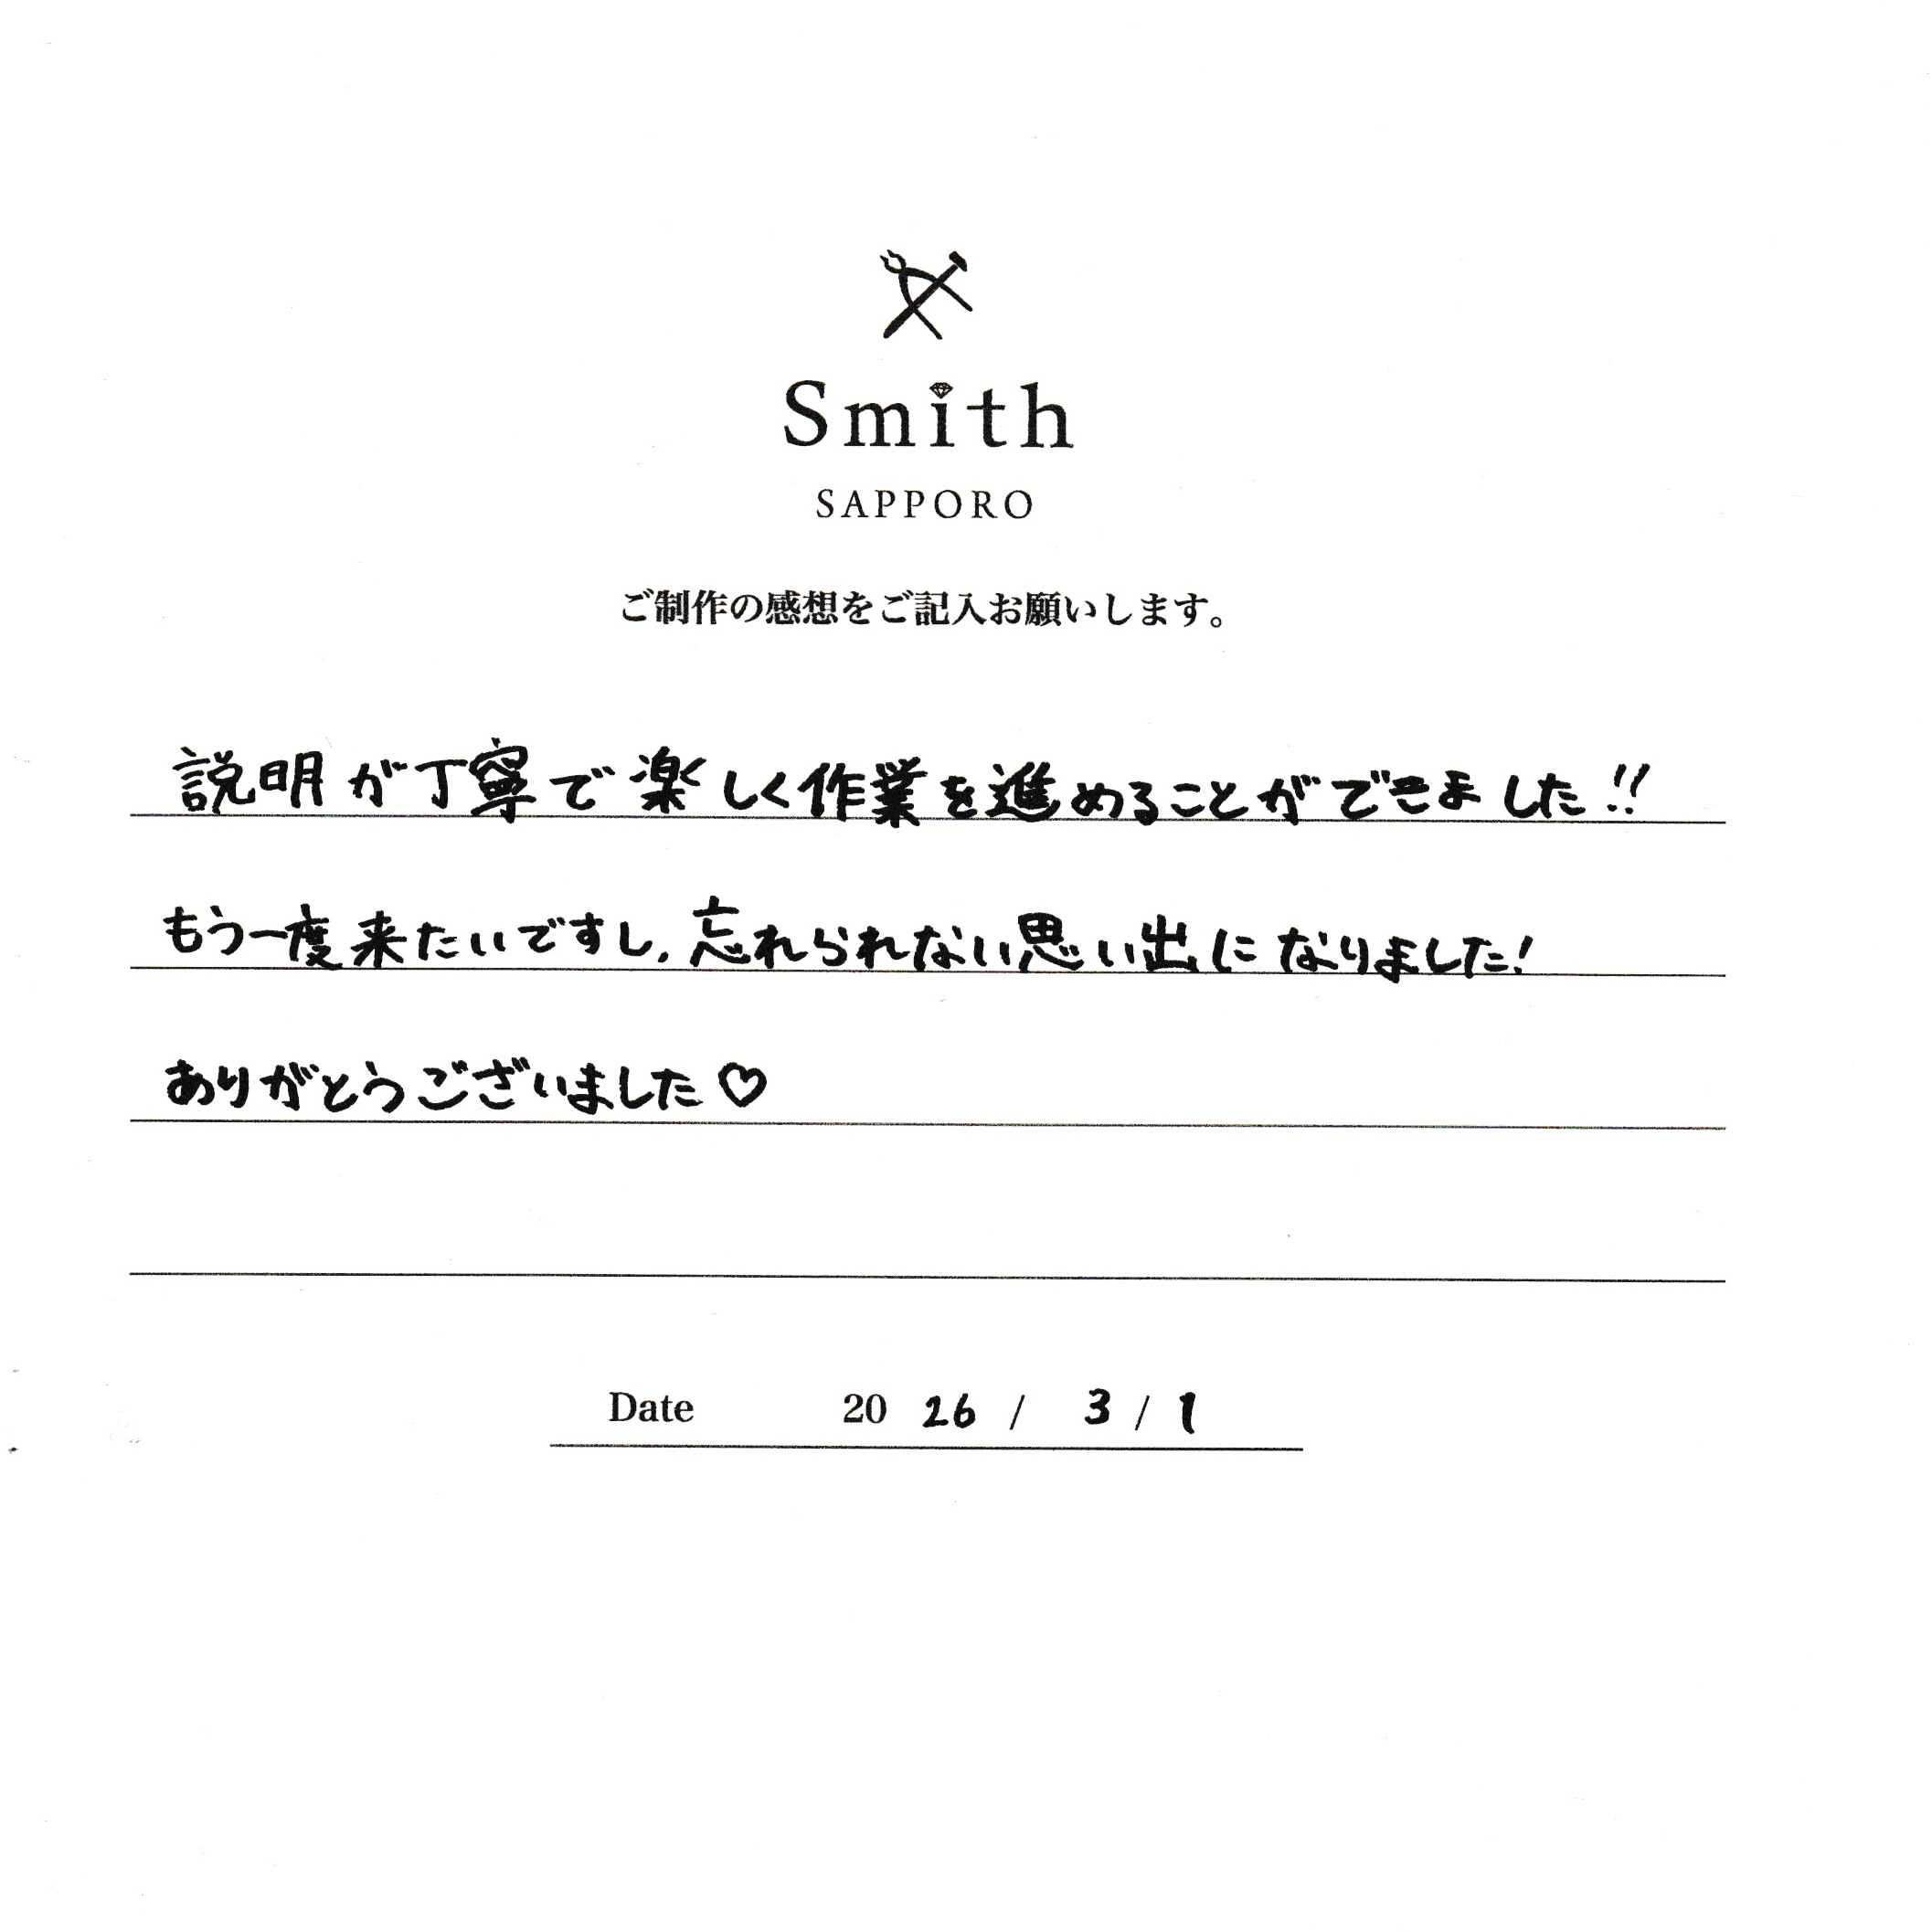 Smith
SAPPORO
ご制作の感想をご記入お願いします。
説明が丁寧で楽しく作業を進めることができました!!
もう一度来たいですし、忘れられない思い出になりました!
ありがとうございました♡
Date 2026 / 3 / 1